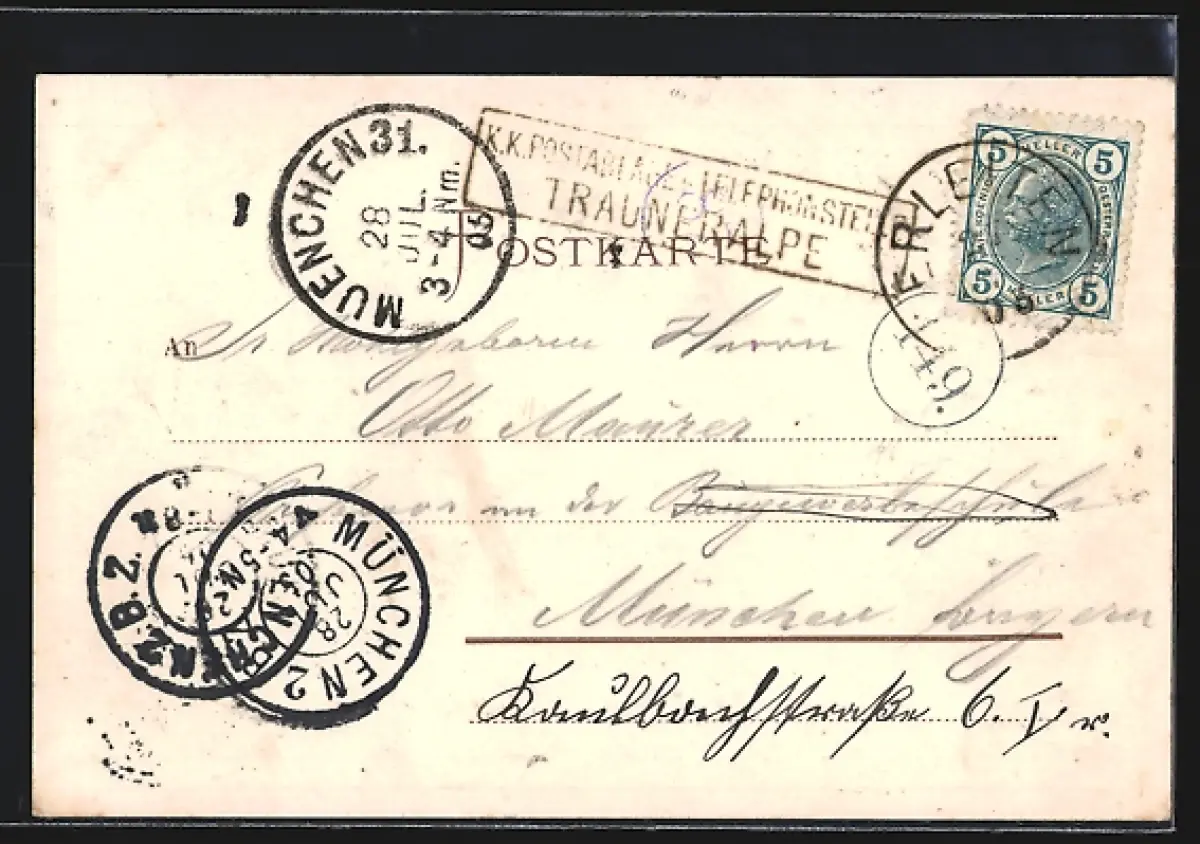 MUENCHEN 31.
28
JUL.
3-4 Nm.
05
K.K. POSTABLAGE u. TELEPHONSTELLE
TRAUNERALPE
POSTKARTE
5 HELLER 5
5 HELLER 5
FERLEITEN
05
149
An Sr. Herrn
Otto Maurer
an der Baugewerkschule
München Bayern
Kaulbachstraße 6. I r.
MÜNCHEN 2
28
JUL
05
4-5 N
B.2.